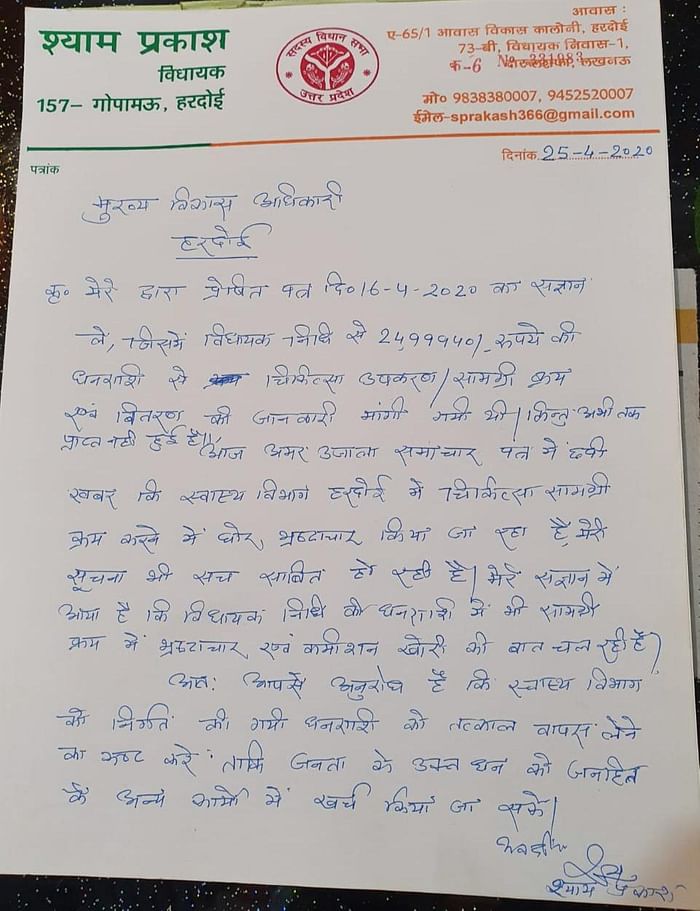 श्याम प्रकाश
विधायक
157– गोपामऊ, हरदोई
सदस्य विधान सभा
उत्तर प्रदेश
आवास :
ए-65/1 आवास विकास कालोनी, हरदोई
73-बी, विधायक निवास-1,
क-6 लखनऊ
मो० 9838380007, 9452520007
ईमेल-sprakash366@gmail.com
पत्रांक
दिनांक 25-4-2020
मुख्य विकास अधिकारी
हरदोई
कृ० मेरे द्वारा प्रेषित पत्र दि० 16-4-2020 का संज्ञान
लें, जिसमें विधायक निधि से 2499940/- रुपये की
धनराशी से चिकित्सा उपकरण/सामग्री क्रय
एवं वितरण की जानकारी मांगी गयी थी| किन्तु अभी तक
प्राप्त नही हुई है।
आज अमर उजाला समाचार पत्र में छपी
खबर कि स्वास्थ्य विभाग हरदोई में चिकित्सा सामग्री
क्रय करने में घोर भ्रष्टाचार किया जा रहा है, मेरी
सूचना भी सच साबित हो रही है| मेरे संज्ञान में
आया है कि विधायक निधि की धनराशी में भी सामग्री
क्रय में भ्रष्टाचार एवं कमीशन खोरी की बात चल रही है|
अतः आपसे अनुरोध है कि स्वास्थ्य विभाग
को निर्गत की गयी धनराशी को तत्काल वापस लेने
का कष्ट करें ताकि जनता के उक्त धन को जनहित
के अन्य कार्यो में खर्च किया जा सके|
भवदीय
श्याम प्रकाश